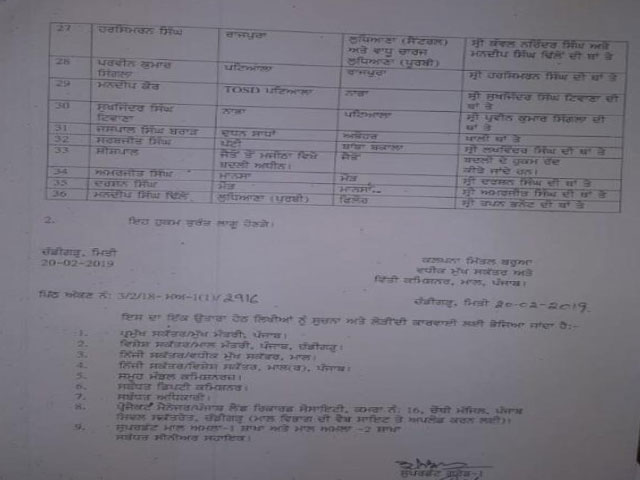 27 ਹਰਸਿਮਰਨ ਸਿੰਘ ਰਾਜਪੁਰਾ ਲੁਧਿਆਣਾ (ਸੈਂਟਰਲ) ਅਤੇ ਵਾਧੂ ਚਾਰਜ ਲੁਧਿਆਣਾ (ਪੂਰਬੀ) ਸ੍ਰੀ ਕੰਵਲ ਨਰਿੰਦਰ ਸਿੰਘ ਅਤੇ ਮਨਦੀਪ ਸਿੰਘ ਢਿੱਲੋਂ ਦੀ ਥਾਂ ਤੇ
28 ਪਰਵੀਨ ਕੁਮਾਰ ਸਿੰਗਲਾ ਪਟਿਆਲਾ ਰਾਜਪੁਰਾ ਸ੍ਰੀ ਹਰਸਿਮਰਨ ਸਿੰਘ ਦੀ ਥਾਂ ਤੇ
29 ਮਨਦੀਪ ਕੌਰ TOSD ਪਟਿਆਲਾ ਨਾਭਾ ਸ੍ਰੀ ਸੁਖਜਿੰਦਰ ਸਿੰਘ ਟਿਵਾਣਾ ਦੀ ਥਾਂ ਤੇ
30 ਸੁਖਜਿੰਦਰ ਸਿੰਘ ਟਿਵਾਣਾ ਨਾਭਾ ਪਟਿਆਲਾ ਸ੍ਰੀ ਪ੍ਰਵੀਨ ਕੁਮਾਰ ਸਿੰਗਲਾ ਦੀ ਥਾਂ ਤੇ
31 ਜਸਪਾਲ ਸਿੰਘ ਬਰਾੜ ਦੂਧਨ ਸਾਧਾਂ ਅਬੋਹਰ ਖਾਲੀ ਥਾਂ ਤੇ
32 ਸਰਬਜੀਤ ਸਿੰਘ ਪੱਟੀ ਬਾਬਾ ਬਕਾਲਾ ਸ੍ਰੀ ਲਖਵਿੰਦਰ ਸਿੰਘ ਦੀ ਥਾਂ ਤੇ
33 ਸੀਸਪਾਲ ਜੈਤੋਂ ਤੋਂ ਮਜੀਠਾ ਵਿਖੇ ਬਦਲੀ ਅਧੀਨ। ਜੈਤੋਂ ਬਦਲੀ ਦੇ ਹੁਕਮ ਰੱਦ ਕੀਤੇ ਜਾਂਦੇ ਹਨ।
34 ਅਮਰਜੀਤ ਸਿੰਘ ਮਾਨਸਾ ਮੌੜ ਸ੍ਰੀ ਦਰਸ਼ਨ ਸਿੰਘ ਦੀ ਥਾਂ ਤੇ
35 ਦਰਸ਼ਨ ਸਿੰਘ ਮੌੜ ਮਾਨਸਾ ਸ੍ਰੀ ਅਮਰਜੀਤ ਸਿੰਘ ਦੀ ਥਾਂ ਤੇ
36 ਮਨਦੀਪ ਸਿੰਘ ਢਿੱਲੋਂ ਲੁਧਿਆਣਾ (ਪੂਰਬੀ) ਫਿਲੌਰ ਸ੍ਰੀ ਤਪਨ ਭਨੋਟ ਦੀ ਥਾਂ ਤੇ
2. ਇਹ ਹੁਕਮ ਤੁਰੰਤ ਲਾਗੂ ਹੋਣਗੇ।
ਚੰਡੀਗੜ੍ਹ, ਮਿਤੀ
20-02-2019
ਕਲਪਨਾ ਮਿੱਤਲ ਬਰੂਆ
ਵਧੀਕ ਮੁੱਖ ਸਕੱਤਰ ਅਤੇ
ਵਿੱਤੀ ਕਮਿਸ਼ਨਰ, ਮਾਲ, ਪੰਜਾਬ।
ਪਿੱਠ ਅੰਕਣ ਨੰ: 3/2/18-ਮਅ-1(1)/2916 ਚੰਡੀਗੜ੍ਹ, ਮਿਤੀ 20-02-2019
ਇਸ ਦਾ ਇੱਕ ਉਤਾਰਾ ਹੇਠ ਲਿਖੀਆਂ ਨੂੰ ਸੂਚਨਾ ਅਤੇ ਲੋੜੀਂਦੀ ਕਾਰਵਾਈ ਲਈ ਭੇਜਿਆ ਜਾਂਦਾ ਹੈ:-
1. ਪ੍ਰਮੁੱਖ ਸਕੱਤਰ/ਮੁੱਖ ਮੰਤਰੀ, ਪੰਜਾਬ।
2. ਵਿਸ਼ੇਸ਼ ਸਕੱਤਰ/ਮਾਲ ਮੰਤਰੀ, ਪੰਜਾਬ, ਚੰਡੀਗੜ੍ਹ।
3. ਨਿੱਜੀ ਸਕੱਤਰ/ਵਧੀਕ ਮੁੱਖ ਸਕੱਤਰ, ਮਾਲ।
4. ਨਿੱਜੀ ਸਕੱਤਰ/ਵਿਸ਼ੇਸ਼ ਸਕੱਤਰ, ਮਾਲ(ਬ), ਪੰਜਾਬ।
5. ਸਮੂਹ ਮੰਡਲ ਕਮਿਸ਼ਨਰਜ਼।
6. ਸਬੰਧਤ ਡਿਪਟੀ ਕਮਿਸ਼ਨਰ।
7. ਸਬੰਧਤ ਅਧਿਕਾਰੀ।
8. ਪ੍ਰੋਜੈਕਟ ਮੈਨੇਜਰ/ਪੰਜਾਬ ਲੈਂਡ ਰਿਕਾਰਡ ਸੋਸਾਇਟੀ, ਕਮਰਾ ਨੰ: 16, ਚੌਥੀ ਮੰਜ਼ਿਲ, ਪੰਜਾਬ
ਸਿਵਲ ਸਕੱਤਰੇਤ, ਚੰਡੀਗੜ੍ਹ (ਮਾਲ ਵਿਭਾਗ ਦੀ ਵੈਬ ਸਾਇਟ ਤੇ ਅਪਲੋਡ ਕਰਨ ਲਈ)।
9. ਸੁਪਰਡੰਟ ਮਾਲ ਅਮਲਾ-1 ਸ਼ਾਖਾ ਅਤੇ ਮਾਲ ਅਮਲਾ -2 ਸ਼ਾਖਾ
ਸਬੰਧਤ ਸੀਨੀਅਰ ਸਹਾਇਕ।
ਸੁਪਰਡੰਟ ਗਰੇਡ-1